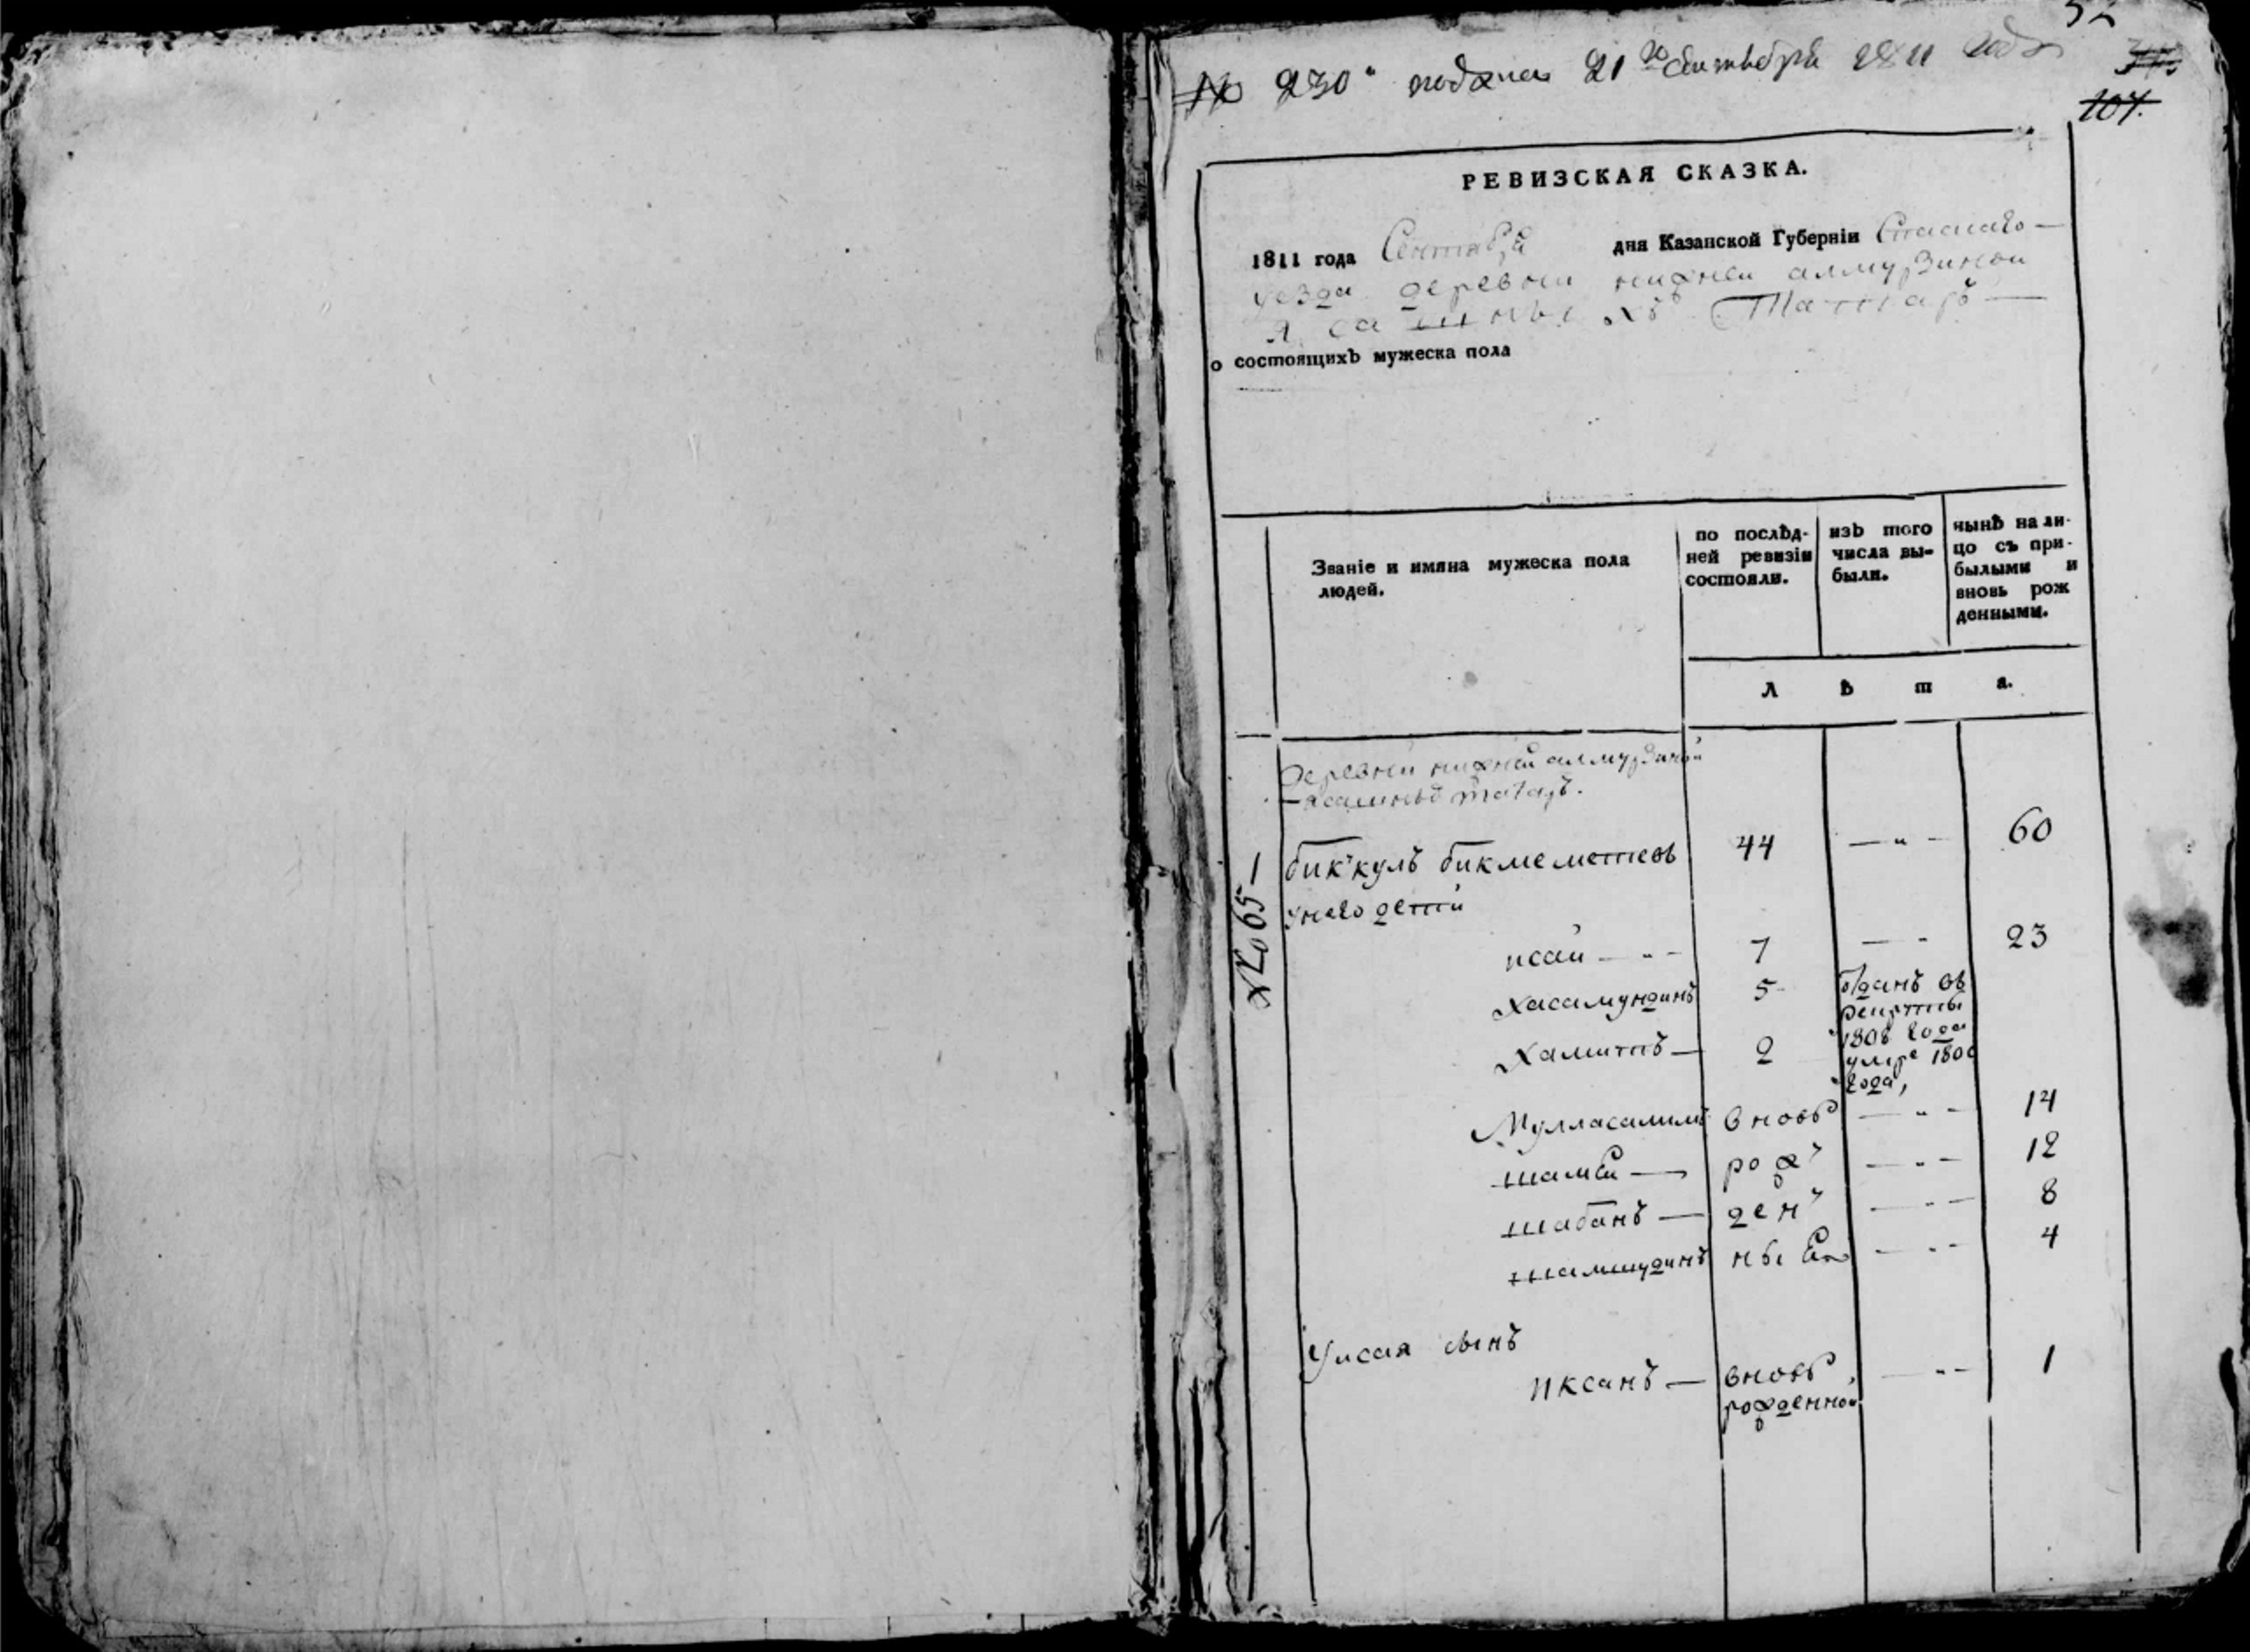 № 230 подана 21го Сентября 1811 года
107.
РЕВИЗСКАЯ СКАЗКА.
1811 года Сентября дня Казанской Губернїи Спаскаго
уезда деревни нижней алмурзиной
Ясашныхъ Татаръ
о состоящихЪ мужеска пола
Званїе и имяна мужеска пола людей.
по послѣдней ревизїи состояли.
изЪ того числа выбыли.
нынѣ на лицо съ прибылыми и вновь рожденными.
Л ѣ т а.
деревни нижней алмурзиной
ясашныхъ татаръ.
№ 65 1 биккулъ бикмеметевъ 44 — " — 60
унего дети
исай — " — 7 — " 23
Хасамундинъ 5 отданъ въ рекруты 1808 года
Хамитъ — 2 умре 180 года,
Мулласалимъ вновь — " — 14
шамей — рож — " — 12
шабанъ — ден — " — 8
шамшудинъ ные — " — 4
Уисая сынъ
иксанъ — вновь рожденной — " — 1